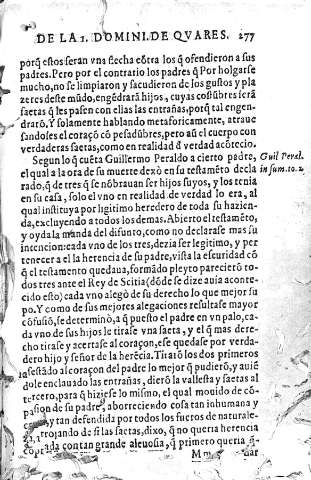 DE LA 1. DOMINI. DE QVARES. 277
porq̃ estos seran vna flecha cõtra los q̃ ofendieron a sus
padres. Pero por el contrario los padres q̃ Por holgarse
mucho, no se limpiaron y sacudieron de los gustos y pla
zeres deste mũdo, engẽdrarã hijos, cuyas costũbres serã
saetas q̃ les pasen con ellas las entrañas, porq̃ tal engen-
draro. Y solamente hablando metaforicamente, atraue
sandoles el coraçõ cõ pesadũbres, pero aũ el cuerpo con
verdaderas saetas, como en realidad d̃ verdad acõtecio.
Segun lo q̃ cuẽta Guillermo Peraldo a cierto padre,
el qual a la ora de su muerte dexò en su testamẽto decla
rado, q̃ de tres q̃ se nõbrauan ser hijos suyos, y los tenia
en su casa, solo el vno en realidad de verdad lo era, al
qual instituya por ligitimo heredero de toda su hazien-
da, excluyendo a todos los demas. Abierto el testamẽto,
y oyda la manda del difunto, como no declarase mas su
intencion: cada vno de los tres, dezia ser legitimo, y per
tenecer a el la herencia de su padre, vista la escuridad cõ
q̃ el testamento quedaua, formãdo pleyto parecierõ to-
dos tres ante el Rey de Scitia (dõde se dize auia aconte-
cido esto) cada vno alegò de su derecho lo que mejor su
po. Y como de sus mejores alegaciones resultase mayor
cõfusiõ, se determinò, a q̃ puesto el padre en vn palo, ca-
da vno de sus hijos le tirase vna saeta, y el q̃ mas dere-
cho tirase y acertase al coraçon, ese quedase por verda-
dero hijo y señor de la herẽcia. Tiraiõ los dos primeros
asestãdo al coraçon del padre lo mejor q̃ pudierõ, y auiẽ
dole enclauado las entrañas, dierõ la vallesta y saetas al
tercero, para q̃ hiziese lo mismo, el qual mouido de cõ-
pasion de su padre, aborreciendo cosa tan inhumana y
y tan defendida por todos los fueros de natural
arrojando de si las saetas, dixo, q̃ no queria herencia
con tan grande aleuosia, q̃ primero queria q̃
Guil Peral.
in sum. 10. 2